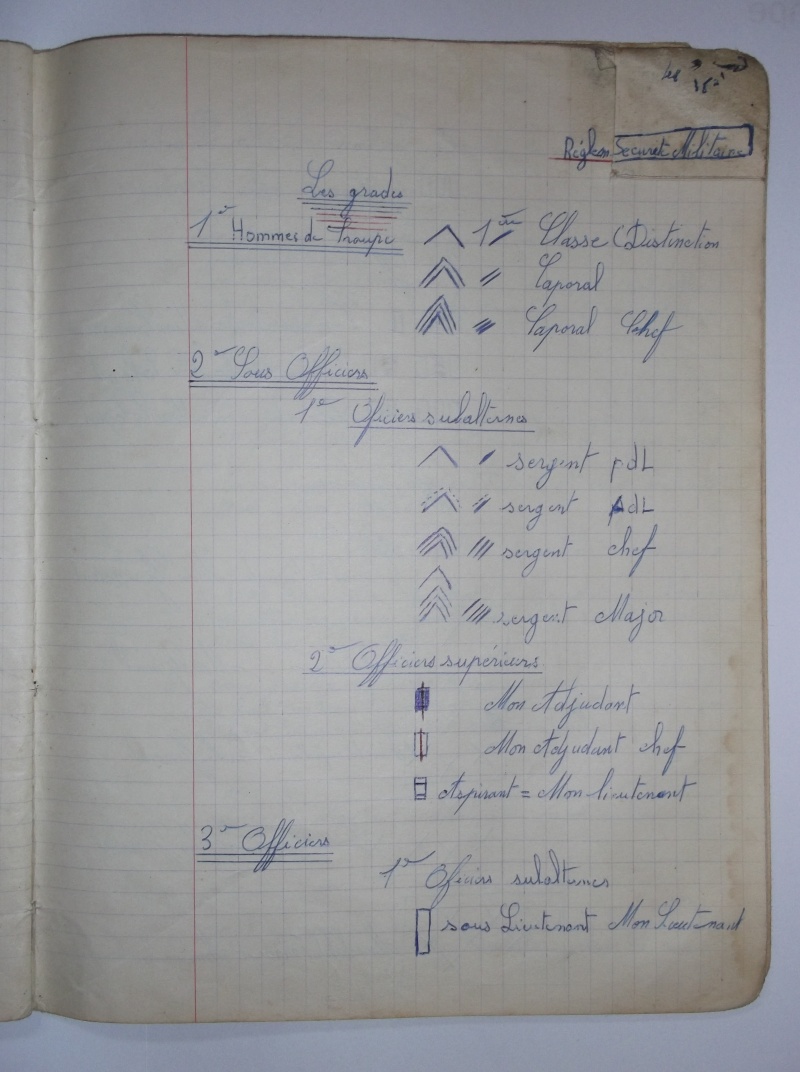 Les
Réglem Securet Militaire
Les grades
1er Hommes de Troupe
1ère Classe (Distinction
Caporal
Caporal Chef
2er Sous Officiers
1er Oficiers subalternes
sergent pdL
sergent ADL
sergent chef
sergent Major
2er Officiers supérieurs
Mon Adjudant
Mon Adjudant chef
Aspirant = Mon lieutenant
3er Officiers
1er Oficiers subalternes
sous Lieutenant Mon Lieutenant